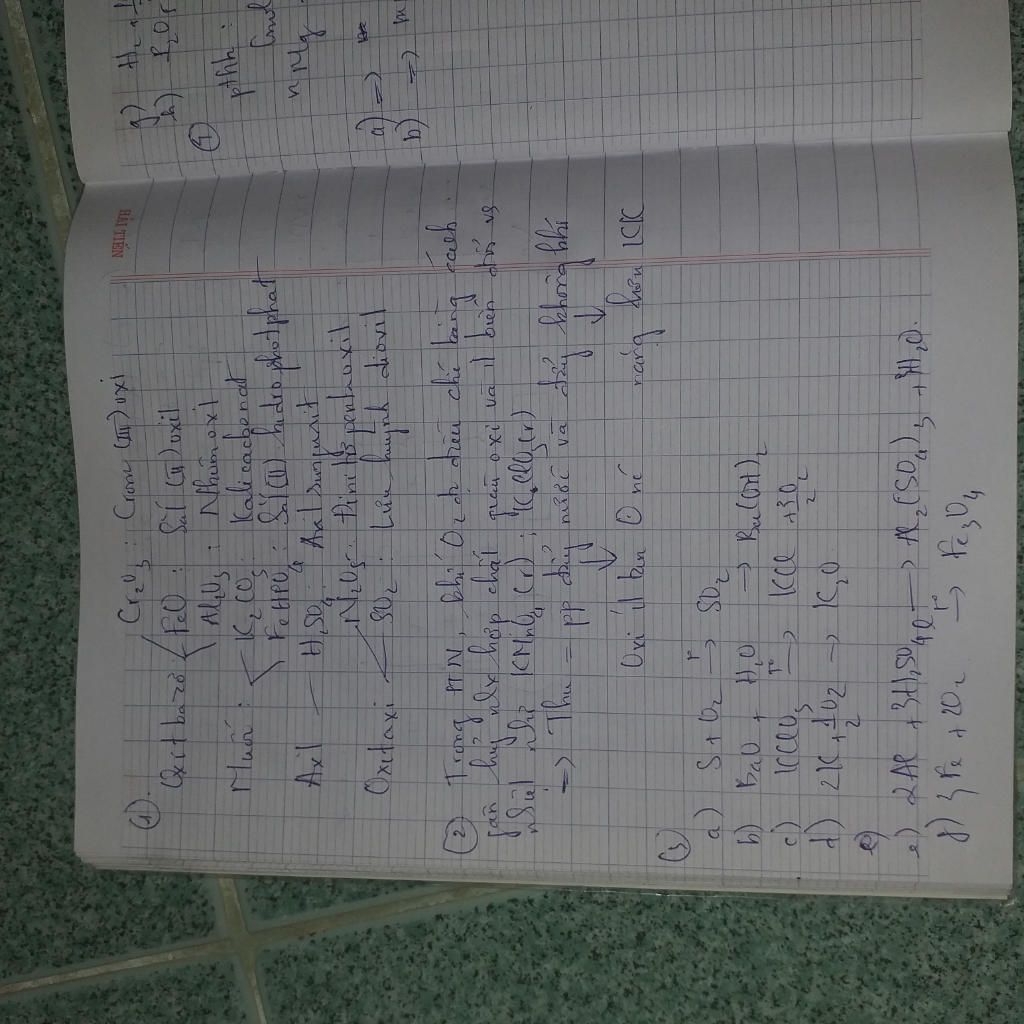 HẢI TIẾN
①.
Cr2O3 : Crom (III) oxi
Oxit bazơ : FeO : Sắt (II) oxit
Al2O3 : Nhôm oxit
Muối : K2CO3 : Kali cacbonat
FeHPO4 : Sắt (II) hidro photphat
Axit — H2SO4 : Axit sunfurit
Oxit axi N2O5 : Đinitơ pentaoxit
SO2 : Lưu huỳnh đioxit
② Trong PTN, khí O2 đc điều chế bằng cách
phân huỷ hợp chất giàu oxi và
nhiệt như KMnO4 (r) ; KClO3 (r)
=> Thu = pp đẩy nước và đẩy không khí
Oxi ít tan O nó nặng hơn KK
③
a) S + O2 → SO2
b) BaO + H2O → Ba(OH)2
c) KClO3 → KCl + 3/2 O2
d) 2K + 1/2 O2 → K2O
e) 2Al + 3H2SO4 → Al2(SO4)3 + 3H2O.
f) 3Fe + 2O2 → Fe3O4
g) H2 +
h) P2O5
④
pthh :
nMg
a) =>
b) => m